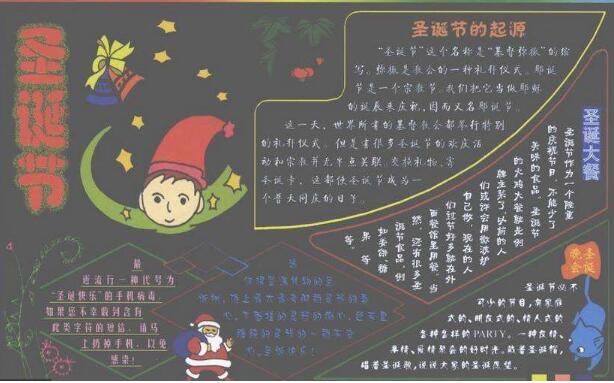 圣诞节
圣诞节的起源
“圣诞节”这个名称是“基督弥撒”的缩
写。弥撒是教会的一种礼拜仪式。耶诞
节是一个宗教节。我们把它当做耶稣
的诞辰来庆祝，因而又名耶诞节。
这一天，世界所有的基督教会都举行特别
的礼拜仪式。但是有很多圣诞节的欢庆活
动和宗教并无半点关联。交换礼物，寄
圣诞卡，这都使圣诞节成为一
个普天同庆的日子。
圣诞大餐
圣诞节作为一个隆重
的庆祝节日，不能少了
美味的食品。圣诞节
的火鸡大餐就是例
牌主菜了。以前的人
们或许会用微波炉
自己做，现在的人
们过节好多就在外
面餐馆里用餐，当
然，还有很多圣
诞节食品，例
如姜饼、糖
果，等
等。
最
近流行一种代号为
“圣诞快乐”的手机病毒，
如果您不幸收到含有
此类字符的短信，请马
上扔掉手机，以免
感染！
圣诞
晚会
圣诞节必不
可少的节目，有家庭
式的，朋友式的，情人式的
各种各样的PARTY。一种友情、
亲情、爱情聚会的好时光。戴着圣诞帽，
唱着圣诞歌，说说大家的圣诞愿望。